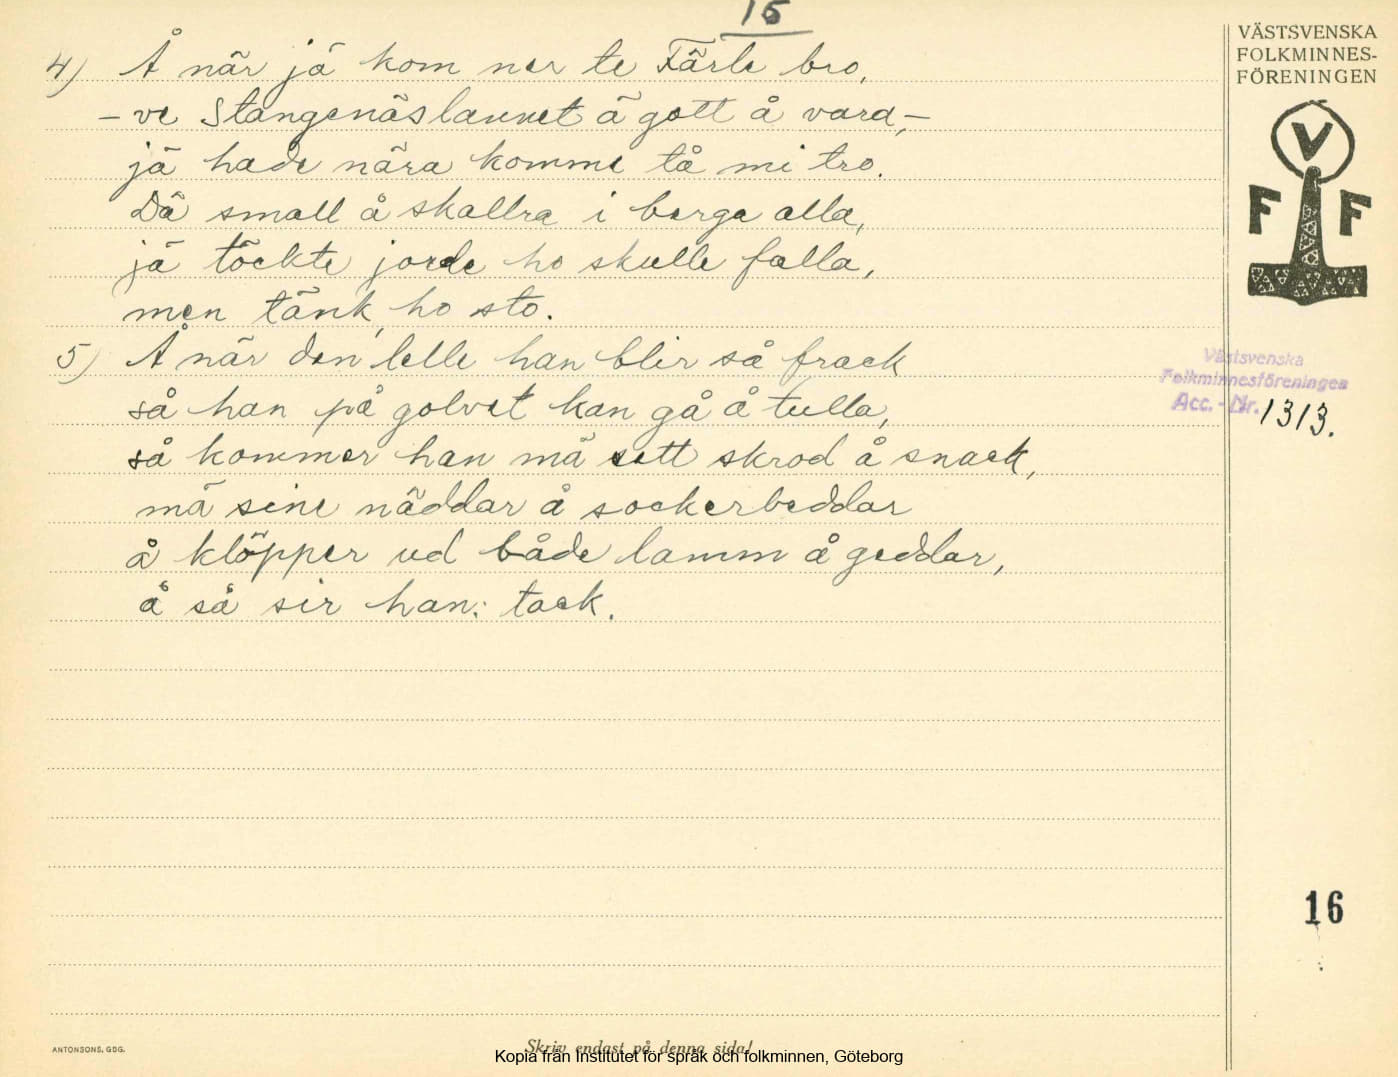 15
VÄSTSVENSKA
FOLKMINNES-
FÖRENINGEN
V
F F
4) Å när jä kom ner te Färle bro,
– ve Stangenäslannet ä gott å vara, –
jä hade nära komme tå mi tro.
Dä small å skallra i berga alla,
jä töckte jorde ho skulle falla,
men tänk, ho sto.
5) Å när den lelle han blir så frack
så han på golvet kan gå å tulla,
så kommer han mä sett skrod å snack,
mä sine näddar å sockerbeddar
å klöpper ud både lamm å geddar,
å så sir han: tack.
Västsvenska
Folkminnesföreningen
Acc. - Nr. 1313.
16
ANTONSONS, GBG.
Skriv endast på denna sida!
Kopia från Institutet för språk och folkminnen, Göteborg